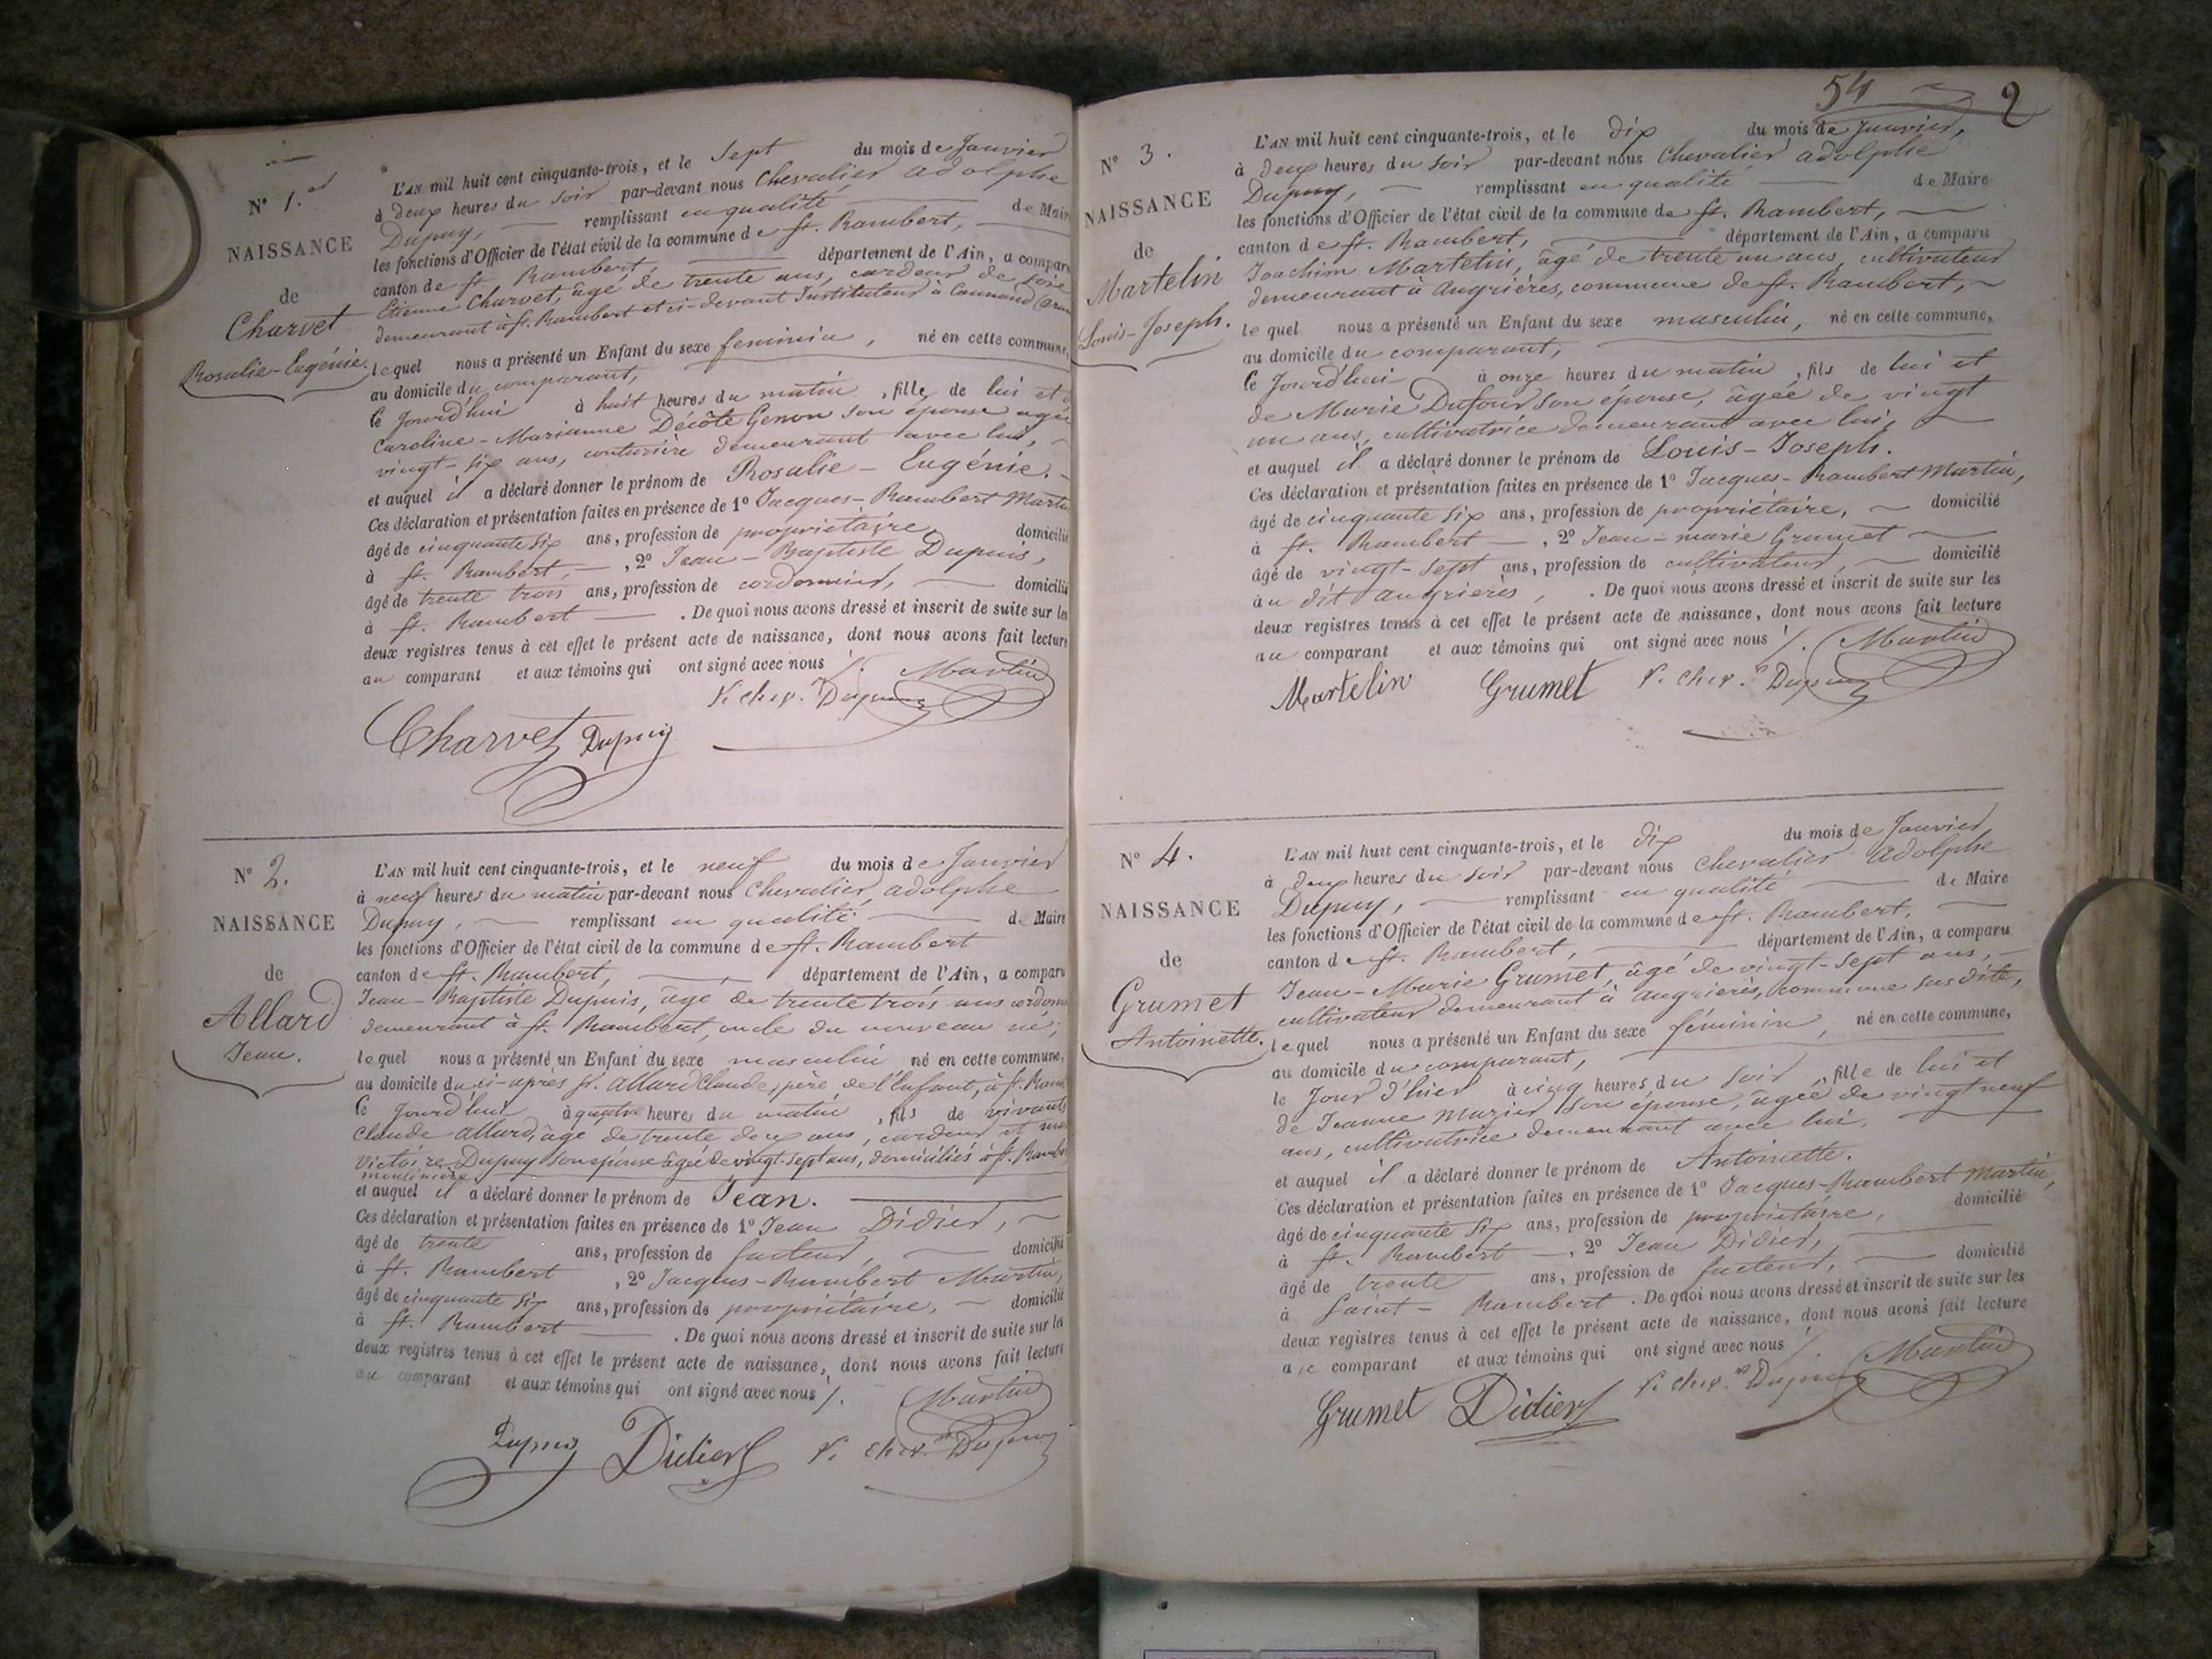 N° 1.er
NAISSANCE
de
Charvet
Rosalie-Eugénie.
L'AN mil huit cent cinquante-trois, et le Sept du mois de Janvier
à deux heures du soir par-devant nous Chevalier adolphe
Dupuy, remplissant en qualité de Maire
les fonctions d'Officier de l'état civil de la commune de St. Rambert,
canton de St Rambert, département de l'Ain, a comparu
Etienne Charvet, âgé de trente ans, cardeur de soie
demeurant à St. Rambert et ci-devant Instituteur à
lequel nous a présenté un Enfant du sexe feminin, né en cette commune,
au domicile du comparant,
Ce Jourd'hui à huit heures du matin, fille de lui et
Caroline-Marianne Décôte Genon son épouse agée
vingt-six ans, couturière demeurant avec lui,
et auquel il a déclaré donner le prénom de Rosalie-Eugénie.
Ces déclaration et présentation faites en présence de 1° Jacques-Rambert Martin
âgé de cinquante six ans, profession de propriétaire, domicilié
à St. Rambert, 2° Jean-Baptiste Dupuis,
âgé de trente trois ans, profession de cordonnier, domicilié
à St. Rambert . De quoi nous avons dressé et inscrit de suite sur les
deux registres tenus à cet effet le présent acte de naissance, dont nous avons fait lecture
au comparant et aux témoins qui ont signé avec nous ./. Martin
Charvet Dupuis V. chev. Dupuy
N° 2.
NAISSANCE
de
Allard
Jean.
L'AN mil huit cent cinquante-trois, et le neuf du mois de Janvier
à neuf heures du matin par-devant nous Chevalier, adolphe
Dupuy, remplissant en qualité de Maire
les fonctions d'Officier de l'état civil de la commune de St. Rambert
canton de St. Rambert, département de l'Ain, a comparu
Jean-Baptiste Dupuis, âgé de trente trois ans cordon
demeurant à St. Rambert, oncle du nouveau né;
lequel nous a présenté un Enfant du sexe masculin né en cette commune,
au domicile du ci-après St. Allard Claude, père de l'Enfant, à St. Ram
Ce Jourd'hui à quatre heures du matin, fils de vivants
Claude Allard, âgé de trente deux ans, cardeur et
Victoire Dupuy son épouse âgée de vingt-sept ans, domiciliés à St. Rambert
moulinière,
et auquel il a déclaré donner le prénom de Jean.
Ces déclaration et présentation faites en présence de 1° Jean Didier,
âgé de trente ans, profession de facteur, domicilié
à St. Rambert, 2° Jacques-Rambert Martin,
âgé de cinquante six ans, profession de propriétaire, domicilié
à St. Rambert . De quoi nous avons dressé et inscrit de suite sur les
deux registres tenus à cet effet le présent acte de naissance, dont nous avons fait lecture
au comparant et aux témoins qui ont signé avec nous ./. Martin
Dupuis Didier V. chev. Dupuy
54 2
N° 3.
NAISSANCE
de
Martelin
Louis-Joseph.
L'AN mil huit cent cinquante-trois, et le dix du mois de Janvier,
à deux heures du soir par-devant nous Chevalier adolphe
Dupuy, remplissant en qualité de Maire
les fonctions d'Officier de l'état civil de la commune de St. Rambert,
canton de St. Rambert, département de l'Ain, a comparu
Joachim Martelin, âgé de trente un ans, cultivateur
demeurant à angrières, commune de St. Rambert,
lequel nous a présenté un Enfant du sexe masculin, né en cette commune,
au domicile du comparant,
Ce Jourd'hui à onze heures du matin, fils de lui et
de Marie Dufour son épouse, âgée de vingt
un ans, cultivatrice demeurant avec lui,
et auquel il a déclaré donner le prénom de Louis-Joseph.
Ces déclaration et présentation faites en présence de 1° Jacques-Rambert Martin,
âgé de cinquante six ans, profession de propriétaire, domicilié
à St. Rambert, 2° Jean-marie Grumet
âgé de vingt-sept ans, profession de cultivateur, domicilié
au dit angrières, . De quoi nous avons dressé et inscrit de suite sur les
deux registres tenus à cet effet le présent acte de naissance, dont nous avons fait lecture
au comparant et aux témoins qui ont signé avec nous ./. Martin
Martelin Grumet V. chev. Dupuy
N° 4.
NAISSANCE
de
Grumet
Antoinette.
L'AN mil huit cent cinquante-trois, et le dix du mois de Janvier,
à deux heures du soir par-devant nous Chevalier adolphe
Dupuy, remplissant en qualité de Maire
les fonctions d'Officier de l'état civil de la commune de St. Rambert,
canton de St. Rambert, département de l'Ain, a comparu
Jean-Marie Grumet, âgé de vingt-sept ans,
cultivateur demeurant à angrières, commune susdite,
lequel nous a présenté un Enfant du sexe féminin, né en cette commune,
au domicile du comparant,
le Jour d'hier à cinq heures du soir, fille de lui et
de Jeanne Mazier son épouse, âgée de vingt neuf
ans, cultivatrice demeurant avec lui,
et auquel il a déclaré donner le prénom de Antoinette.
Ces déclaration et présentation faites en présence de 1° Jacques-Rambert Martin,
âgé de cinquante six ans, profession de propriétaire, domicilié
à St. Rambert, 2° Jean Didier,
âgé de trente ans, profession de facteur, domicilié
à Saint-Rambert . De quoi nous avons dressé et inscrit de suite sur les
deux registres tenus à cet effet le présent acte de naissance, dont nous avons fait lecture
au comparant et aux témoins qui ont signé avec nous ./. Martin
Grumet Didier V. chev. Dupuy